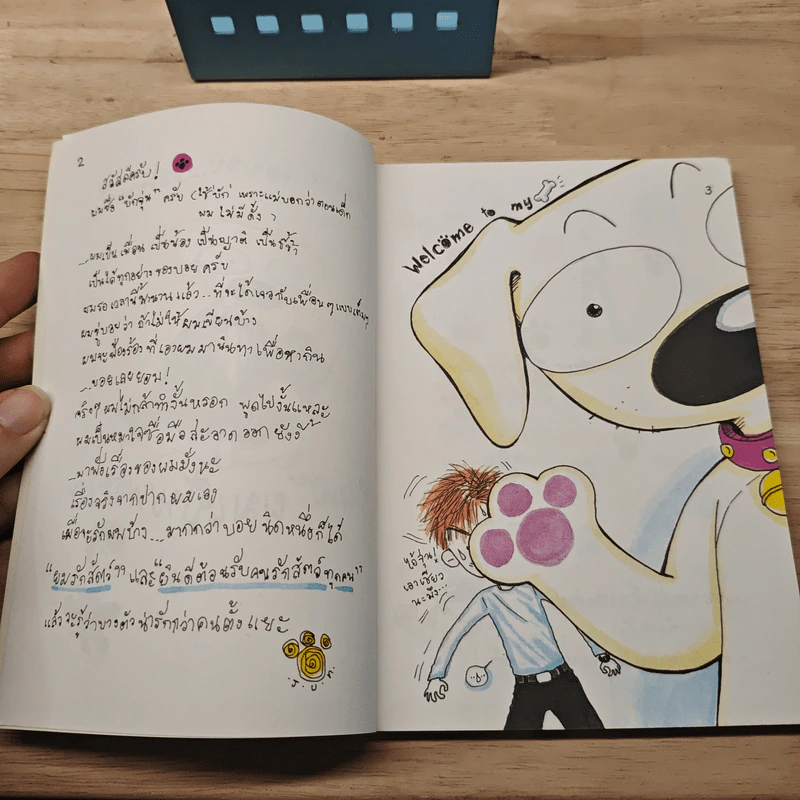 2
สวัสดีครับ!
ผมชื่อ "บักจุ่น" ครับ (ใช้ 'บัก' เพราะแม่บอกว่าตอนเด็ก
ผม ไม่มีดั้ง)
...ผมเป็นเพื่อน เป็นน้อง เป็นญาติ เป็นขี้ข้า
เป็นได้ทุกอย่าง ของบอย ครับ
ผมรอเวลานี้มานานแล้ว...ที่จะได้เจอกับเพื่อนๆแบบเต็มๆ
ผมขู่บอยว่า ถ้าไม่ให้ผมเขียนบ้าง
ผมจะฟ้องร้อง ที่เอาผมมานินทาเพื่อหากิน
...บอยเลยยอม!
จริงๆ ผมไม่กล้าทำงั้นหรอก พูดไปงั้นแหละ
ผมเป็นหมาใจซื่อมือสะอาด ออก ยังงี้
...มาฟังเรื่องของผมมั่งนะ
เรื่องจริงจากปาก ผมเอง
เผื่อจะรักผมบ้าง...มากกว่า บอย นิดหนึ่งก็ได้
"ผมรักสัตว์" และ"ยินดีต้อนรับคนรักสัตว์ทุกคน"
แล้วจะรู้ว่าบางตัวน่ารักกว่าคนตั้งเยอะ
3
Welcome to my
ไอ้จุ่น!
เอาเชียว
นะมึง...